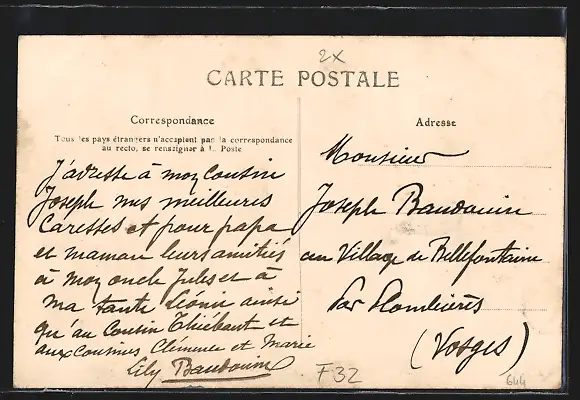 2x
CARTE POSTALE
Correspondance
Tous les pays étrangers n'acceptent pas la correspondance
au recto, se renseigner à la Poste
J'adresse à mon cousin
Joseph mes meilleures
Caresses et pour papa
et maman leurs amitiés
à mon oncle Jules et à
ma tante Léonie ainsi
qu'au Cousin Thiébaut et
aux cousines Clémence et Marie
Lily Baudouin
Adresse
Monsieur
Joseph Baudouin
au Village de Bellefontaine
Par Plombières
(Vosges)
F32
644